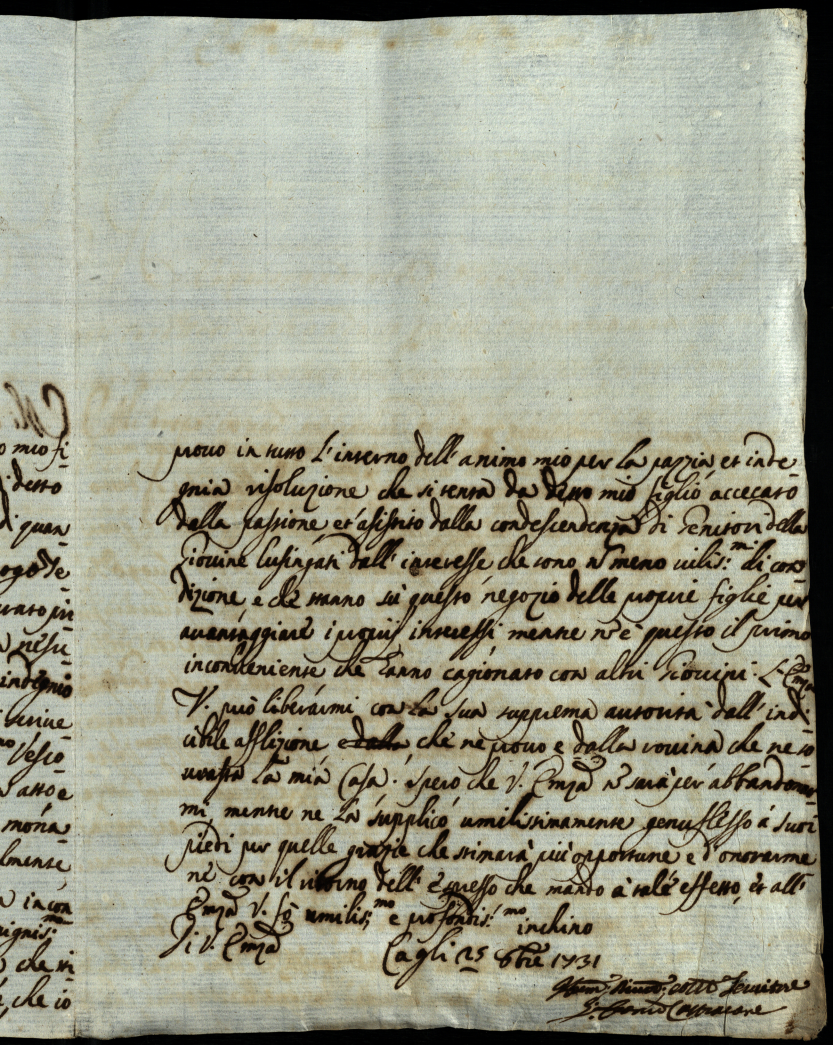 o mio fi
detto
di quan
urato in
indegnio
scrive
Vesco
atto e
mona
lmente
incon
che vi
che io
provo in tutto l'interno dell'animo mio per la pazzia et inde
gnia risoluzione che si tenta da detto mio figlio accecato
dalla passione et asistito dalla condescendenza di Genitori della
Giovine lusingati dall'interesse che sono nō meno vilis:mi di con
dizione, e che stanno sù questo negozio delle proprie figlie per
avantaggiare i proprij interessi mentre nō è questo il primo
inconveniente che hanno cagionato con altri Giovini. L'Emza
V. può liberarmi con la sua suprema autorità dall'indi
cibile afflizione e dalla che ne provo e dalla rovina che ne so
vrasta la mia Casa. Spero che V. Emza nō sarà per abbandonar
mi, mentre ne la supplico umilissimamente genuflesso a suoi
piedi per quelle grazie che stimarà più opportune e d'onorarme
ne con il ritorno dell'espresso che mando a tale effetto, et all'
Emza V. fò umilis:mo e profondis:mo inchino
Di V. Emza Cagli 25 8bre 1731
Servitore